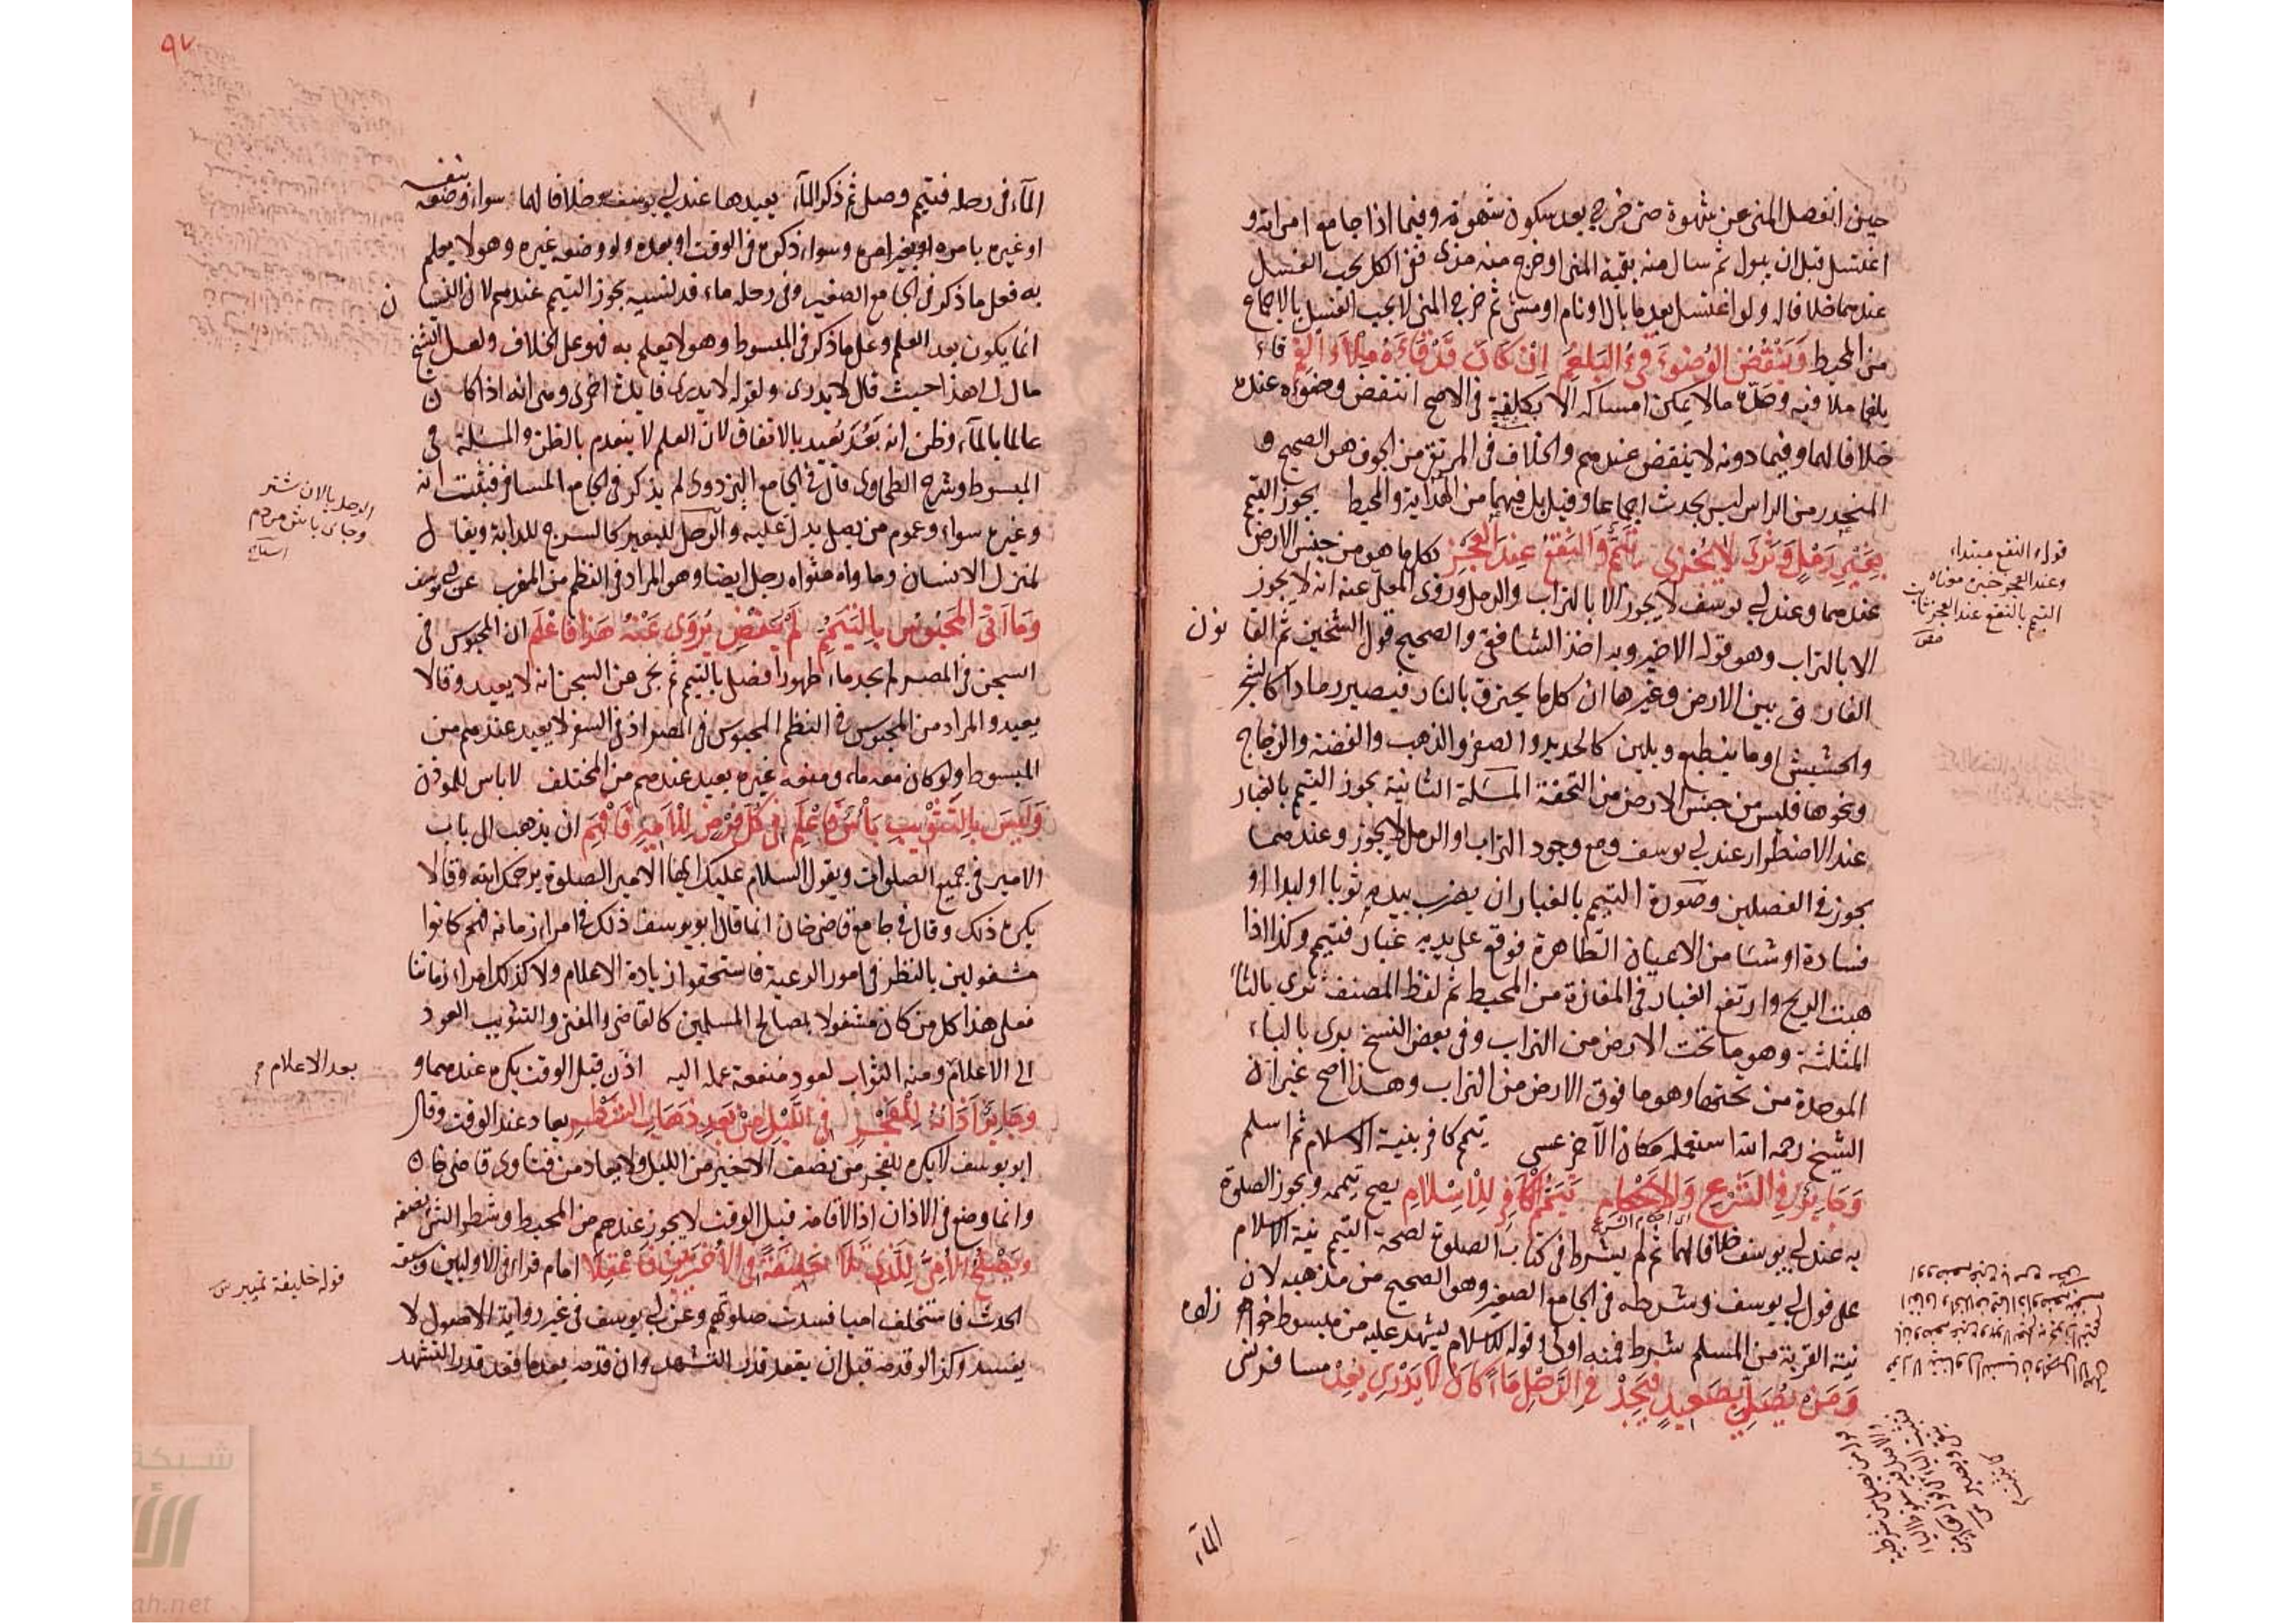 حين انفصل المنى عن شهوة حتى خرج بعد سكون شهوة وفيما اذا جامع امراته و
اغتسل قبل ان يبول ثم سال منه بقية المنى او خرج منه مذى ففى الكل يجب الغسل
عندهما خلافا له ولو اغتسل بعد ما بال او نام او مشى ثم خرج المنى لا يجب الغسل بالاجماع
من المحيط وَيَنْقُضُ الوُضُوءَ قَىءُ البَلْغَمِ اِنْ كَانَ قَدْ قَاءَهُ مِلْاَ الفَمِ قاء
بلغما ملا فيه وحدّه ما لا يمكن امساكه الا بكلفة فى الاصح انتقض وضوءه عنده
خلافا لهما وفيما دونه لا ينقض عندهم والخلاف فى المرتقى من الجوف هو الصحيح و
المنحدر من الراس ليس بحدث اجماعا وقيل بل فيهما من الهداية والمحيط يجوز التيمم
بِغَيْرِ رَمْلٍ وَثَرَىً لا يُجْزِى تَيَمُّمٌ وَالنَقْعُ عِنْدَ العَجْزِ بكل ما هو من جنس الارض
عندهما وعند ابى يوسف لا يجوز الا بالتراب والرمل وروى المعلى عنه انه لا يجوز
الا بالتراب وهو قوله الاخير وبه اخذ الشافعى والصحيح قول الشيخين ثم القانون
الفارق بين الارض وغيرها ان كل ما يحترق بالنار فيصير رمادا كالشجر
والحشيش او ما ينطبع ويلين كالحديد والصفر والذهب والفضة والزجاج
ونحوها فليس من جنس الارض من التحفة المسئلة الثانية يجوز التيمم بالغبار
عند الاضطرار عند ابى يوسف ومع وجود التراب او الرمل لا يجوز وعندهما
يجوز فى الفصلين وصورة التيمم بالغبار ان يضرب بيديه ثوبا او لبدا او
وسادة او شيئا من الاعيان الطاهرة فوقع على يديه غبار فتيمم وكذا اذا
هبت الريح وارتفع الغبار فى المفازة من المحيط ثم لفظ المصنف ثرى بالثاء
المثلثة وهو ما تحت الارض من التراب وفى بعض النسخ برى بالباء
الموحدة من تحتها وهو ما فوق الارض من التراب وهذا اصح غير ان
الشيخ رحمه الله استعمله مكان الآخر عسى تيمم كافر بنية الاسلام ثم اسلم
وَجَايِزٌ فِى الشَّرْعِ وَالاَحْكَامِ تَيَمُّمُ الكَافِرِ لِلْاِسْلَامِ يصح تيممه ويجوز الصلوة
به عند ابى يوسف خلافا لهما ثم لم يشرط فى كتاب الصلوة لصحة التيمم نية الاسلام
على قول ابى يوسف وشرطه فى الجامع الصغير وهو الصحيح من مذهبه لان
نية القربة من المسلم شرط فمنه اولى قوله للاسلام يشهد عليه من مبسوط خواهر زاده
وَمَنْ يُصَلِّى بِصَعِيدٍ فَيَجِدْ فِى الرَّحْلِ مَاءً كَانَ لَا يَدْرِى يُعِدْ مسافر نسى
الماء
قوله النقع مبتداء
وعند العجز خبره معناه
التيمم بالنقع عند العجز ثابت
٩٧
الماء فى رحله فتيمم وصلى ثم ذكر الماء يعيدها عند ابى يوسف خلافا لهما سواء وضعه بنفسه
او غيره بامره او بغير امره وسواء ذكره فى الوقت او بعده ولو وضعه غيره وهو لا يعلم
به فعلى ما ذكر فى الجامع الصغير وفى رحله ماء قد نسيه يجوز التيمم عندهم لان النسيان
انما يكون بعد العلم وعلى ما ذكر فى المبسوط وهو لا يعلم به فهو على الخلاف ولعل الشيخ
مال الى هذا حيث قال لا يدرى ولقوله لا يدرى فايدة اخرى وهى انه اذا كان
عالما بالماء وظن انه بَعُدَ يعيد بالاتفاق لان العلم لا ينعدم بالظن والمسئلة فى
المبسوط وشرح الطحاوى قال فى الجامع البزدوى لم يذكر فى الجامع المسافر فيثبت انه
وغيره سواء وعموم من يصلى يدل عليه والرحل للبعير كالسرج للدابة ويقال
لمنزل الانسان وماواه مثواه رحل ايضا وهو المراد فى النظم من المغرب عن ابى يوسف
وَمَا اَتَى المَحْبُوسُ بِالتَيَمُّمِ لَمْ يَقْضِ يُرْوَى عَنْهُ هَذَا فَاعْلَمِ ان المحبوس فى
السجن فى المصر لم يجد ماء طهورا فصلى بالتيمم ثم خرج من السجن انه لا يعيد وقالا
يعيد والمراد من المحبوس فى النظم المحبوس فى المصر اذ فى السفر لا يعيد عندهم من
المبسوط ولو كان معه ماء ومنعه غيره يعيد عندهم من المختلف لا باس للموذن
وَلَيْسَ بِالتَثْوِيبِ بَأْسٌ فَاعْلَمِ فِى كُلِّ فَرْضٍ لِلْاَمِيرِ فَافْهَمِ ان يذهب الى باب
الامير فى جميع الصلوات ويقول السلام عليك ايها الامير الصلوة يرحمك الله وقالا
يكره ذلك وقال فى جامع قاضى خان انما قال ابو يوسف ذلك فى امراء زمانه لانهم كانوا
مشغولين بالنظر فى امور الرعية فاستحقوا زيادة الاعلام ولا كذلك امراء زماننا
فعلى هذا كل من كان مشغولا بمصالح المسلمين كالقاضى والمفتى والتثويب العود
الى الاعلام ومنه الثواب لعود منفعة عمله اليه اذن قبل الوقت يكره عندهما و
وَجَايِزٌ اَذَانُهُ لِلْفَجْرِ فِى اللَّيْلِ مِنْ بَعْدِ ذَهَابِ الشَّطْرِ يعاد عند الوقت وقال
ابو يوسف لا يكره للفجر من نصف الاخير من الليل ولا يعاد من فتاوى قاضى خان
وانما وضع فى الاذان اذ الاقامة قبل الوقت لا يجوز عندهم من المحيط وشطر الشئ نصفه
وَيَصْلُحُ الاُمِّىُّ لِلَّذِى تَلَا خَلِيفَةً فِى الاُخْرَيَيْنِ فَاعْقِلَا امام قراء فى الاوليين وسبقه
الحدث فاستخلف اميا فسدت صلوتهم وعن ابى يوسف فى غير رواية الاصول لا
يفسد وكذا لو قدمه قبل ان يقعد قدر التشهد وان قدمه بعد ما قعد قدر التشهد
بعد الاعلام
قوله خليفة تمييز